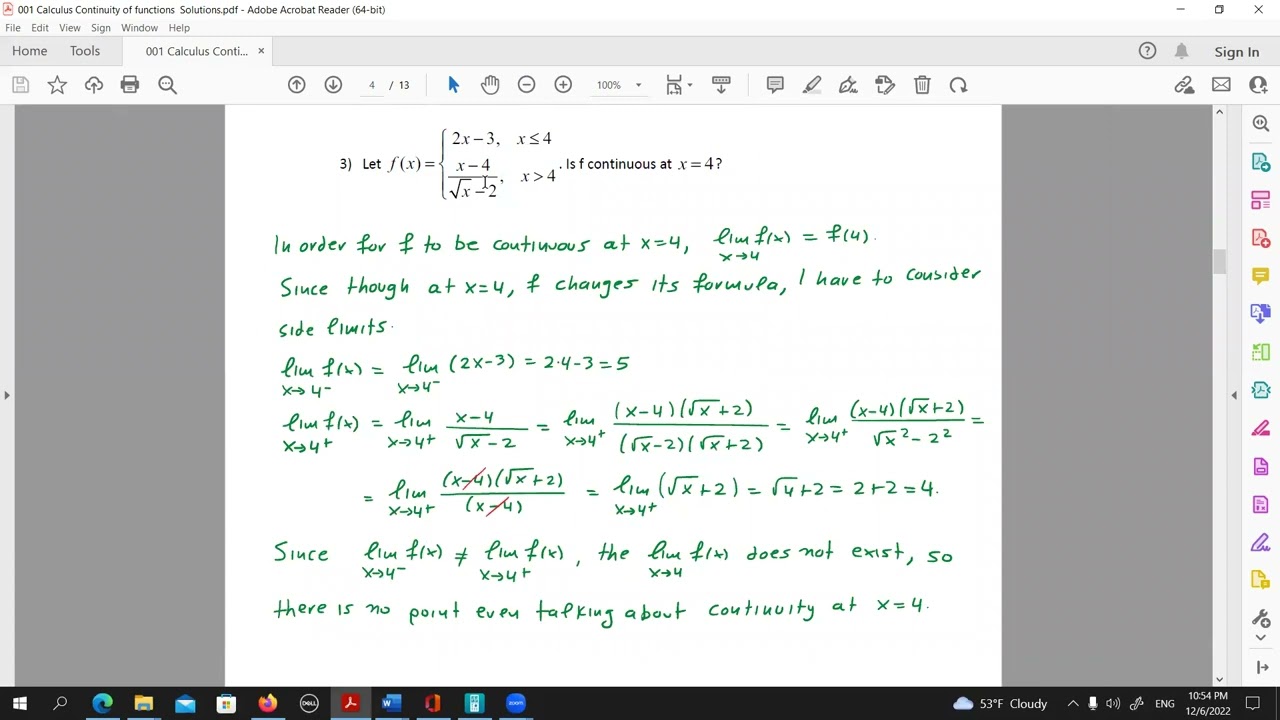 001 Calculus Continuity of functions Solutions.pdf - Adobe Acrobat Reader (64-bit)
File Edit View Sign Window Help
Home Tools 001 Calculus Conti... × Sign In
4 / 13 100%
3) Let f(x) = { 2x − 3, x ≤ 4
(x − 4)/(√x − 2), x > 4 . Is f continuous at x = 4?
In order for f to be continuous at x=4, lim x→4 f(x) = f(4).
Since though at x=4, f changes its formula, I have to consider
side limits.
lim x→4⁻ f(x) = lim x→4⁻ (2x−3) = 2·4−3 = 5
lim x→4⁺ f(x) = lim x→4⁺ (x−4)/(√x−2) = lim x→4⁺ (x−4)(√x+2)/((√x−2)(√x+2)) = lim x→4⁺ (x−4)(√x+2)/(√x²−2²) =
= lim x→4⁺ (x−4)(√x+2)/(x−4) = lim x→4⁺ (√x+2) = √4+2 = 2+2 = 4.
Since lim x→4⁻ f(x) ≠ lim x→4⁺ f(x), the lim x→4 f(x) does not exist, so
there is no point even talking about continuity at x=4.
DELL
zoom
53°F Cloudy
ENG
10:54 PM
12/6/2022